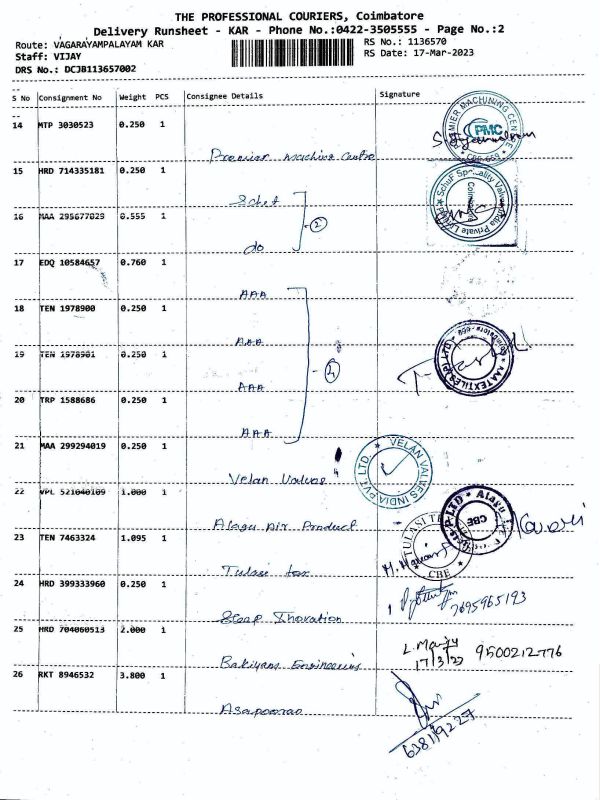 THE PROFESSIONAL COURIERS, Coimbatore
Delivery Runsheet - KAR - Phone No.:0422-3505555 - Page No.:2
Route: VAGARAYAMPALAYAM KAR
RS No.: 1136570
Staff: VIJAY
RS Date: 17-Mar-2023
DRS No.: DCJB113657002
S No Consignment No Weight PCS Consignee Details Signature
14 MTP 3030523 0.250 1
PREMIER MACHINING CENTRE
PMC
CBE-659
Premier Machine Centre
15 HRD 714335181 0.250 1
Schuf Speciality Valves India Private Limited
Coimbatore
Schef
16 MAA 295677029 0.555 1
2
do
17 EDQ 10584657 0.760 1
AAA
18 TEN 1978900 0.250 1
AAA
19 TEN 1978901 0.250 1
4
AAA
20 TRP 1588686 0.250 1
AAA
21 MAA 299294019 0.250 1
VELAN VALVES INDIA PVT LTD.
Velan Valves
22 VPL 521040109 1.000 1
Alagu Air Product
CBE
23 TEN 7463324 1.095 1
TULASI
CBE
Tulasi tex
24 HRD 399333960 0.250 1
7695965193
Steap Inovation
25 HRD 704060513 2.000 1
L. Manju
17/3/23
9500212776
Bakiyam Engineering
26 RKT 8946532 3.800 1
Asapooraa